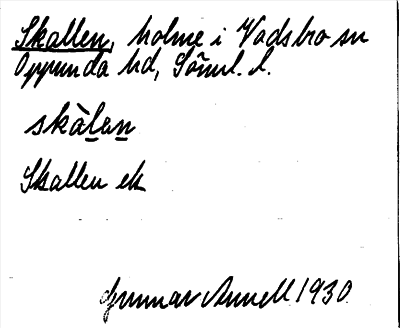 Skallen, holme i Vadsbro sn
Oppunda hd, Söml. l.
skàlan
Skallen ek
Gunnar Annell 1930